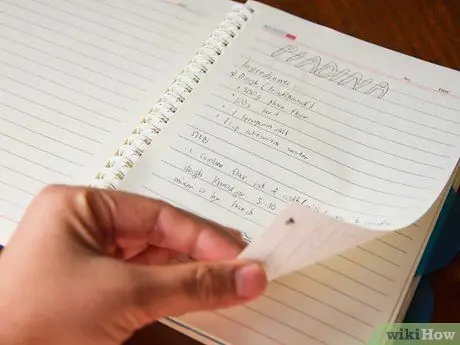 No.
Date.
PIADINA
Ingredients:
Dough (flatbread)
• 500g plain flour
• 120g lard
• 1 teaspoon salt
• 1 cup lukewarm water
Steps
1. Combine flour, salt
dough, knead for 5-10
mixer or by hand
wikiHow